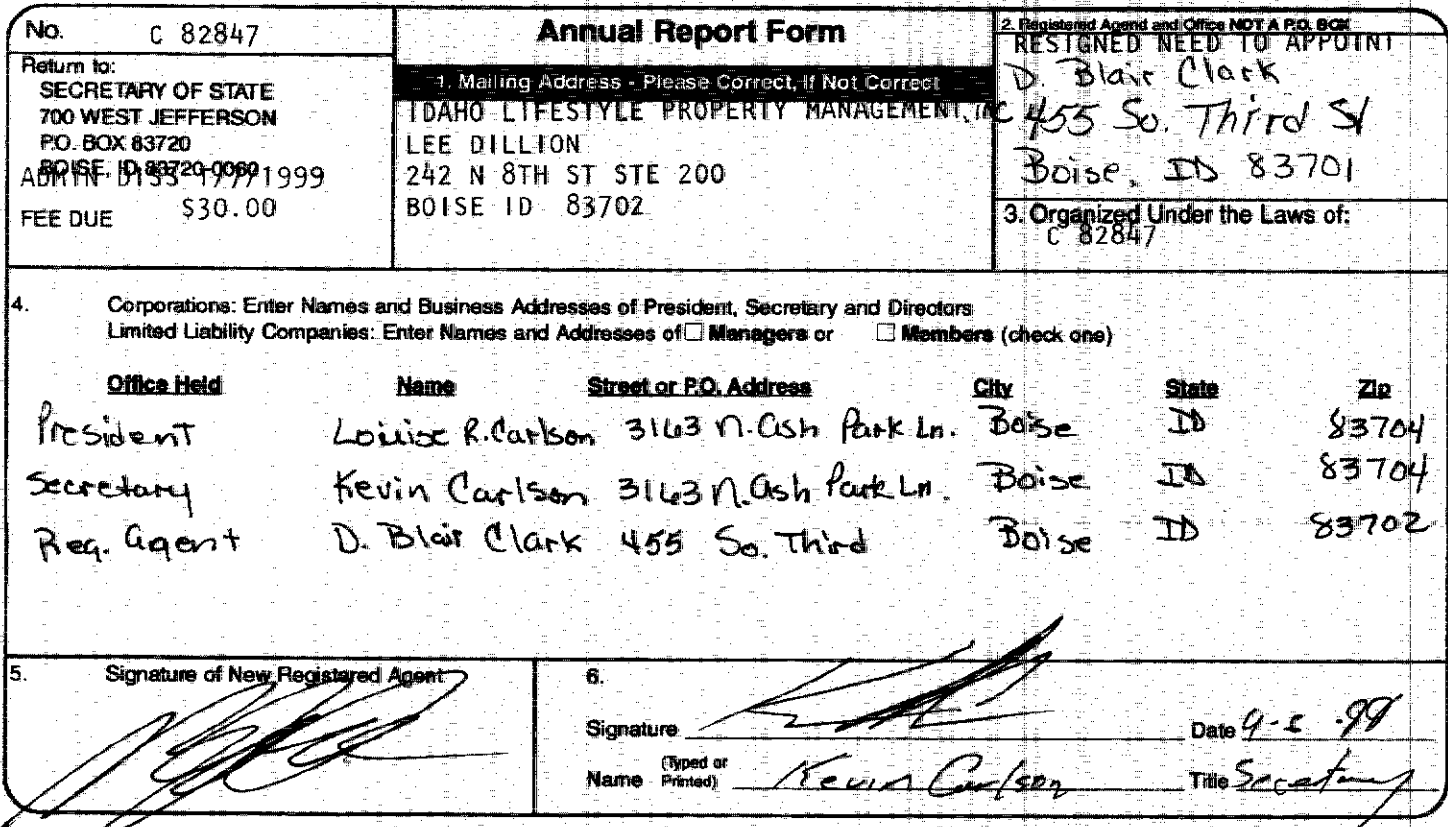 No. C 82847
Return to:
SECRETARY OF STATE
700 WEST JEFFERSON
P.O. BOX 83720
BOISE, ID 83720-0060
ADMIN DISS 1999
FEE DUE $30.00
Annual Report Form
1. Mailing Address - Please Correct, If Not Correct
IDAHO LIFESTYLE PROPERTY MANAGEMENT, INC
LEE DILLION
242 N 8TH ST STE 200
BOISE ID 83702
2. Registered Agend and Office NOT A P.O. BOX
RESIGNED NEED TO APPOINT
D. Blair Clark
455 So. Third St
Boise, ID 83701
3. Organized Under the Laws of:
C 82847
4. Corporations: Enter Names and Business Addresses of President, Secretary and Directors
Limited Liability Companies: Enter Names and Addresses of ☐ Managers or ☐ Members (check one)
Office Held Name Street or P.O. Address City State Zip
President Louise R. Carlson 3163 N. Ash Park Ln. Boise ID 83704
Secretary Kevin Carlson 3163 N. Ash Park Ln. Boise ID 83704
Reg. Agent D. Blair Clark 455 So. Third Boise ID 83702
5. Signature of New Registered Agent
6.
Signature Date
Name (Typed or Printed) Kevin Carlson Title Secretary